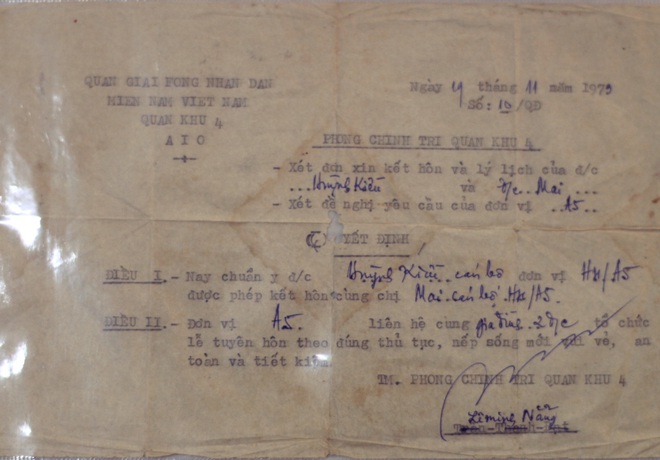 QUAN GIAI FONG NHAN DAN
MIEN NAM VIET NAM
QUAN KHU 4
A I O
Ngày 19 tháng 11 năm 1973
Số: 10/QĐ
PHONG CHINH TRI QUAN KHU 4
- Xét đơn xin kết hôn và lý lịch của đ/c
...Huỳnh Kiều và đ/c. Mai ...
- Xét đề nghị yêu cầu của đơn vị ..A5..
QUYẾT ĐỊNH
ĐIỀU I.- Nay chuẩn y đ/c Huỳnh Kiều. cán bộ đơn vị /A5
được phép kết hôn cùng chị Mai. cán bộ. /A5.
ĐIỀU II.- Đơn vị A5. liên hệ cùng gia đình 2 đ/c tổ chức
lễ tuyên hôn theo đúng thủ tục, nếp sống mới vui vẻ, an
toàn và tiết kiệm.
TM. PHONG CHINH TRI QUAN KHU 4
Lê Minh